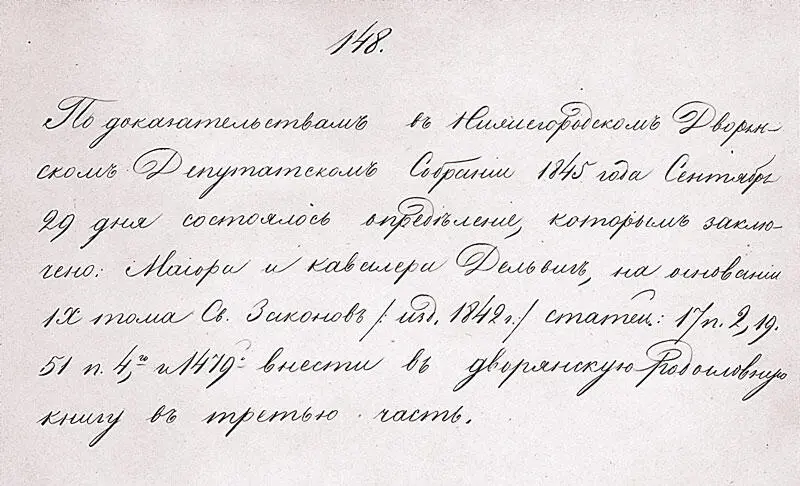 148.
По доказательствамъ въ Нижнегородскомъ Дворян-
скомъ Депутатскомъ Собраніи 1845 года Сентября
29 дня состоялось опредѣленіе, которымъ заклю-
чено: Маіора и кавалера Дельвигъ, на основаніи
IX тома Св. Законовъ /: изд. 1842 г. / статей: 17 п. 2, 19.
51 п. 4,го и 1479: внести въ дворянскую Родословную
книгу въ третью часть.